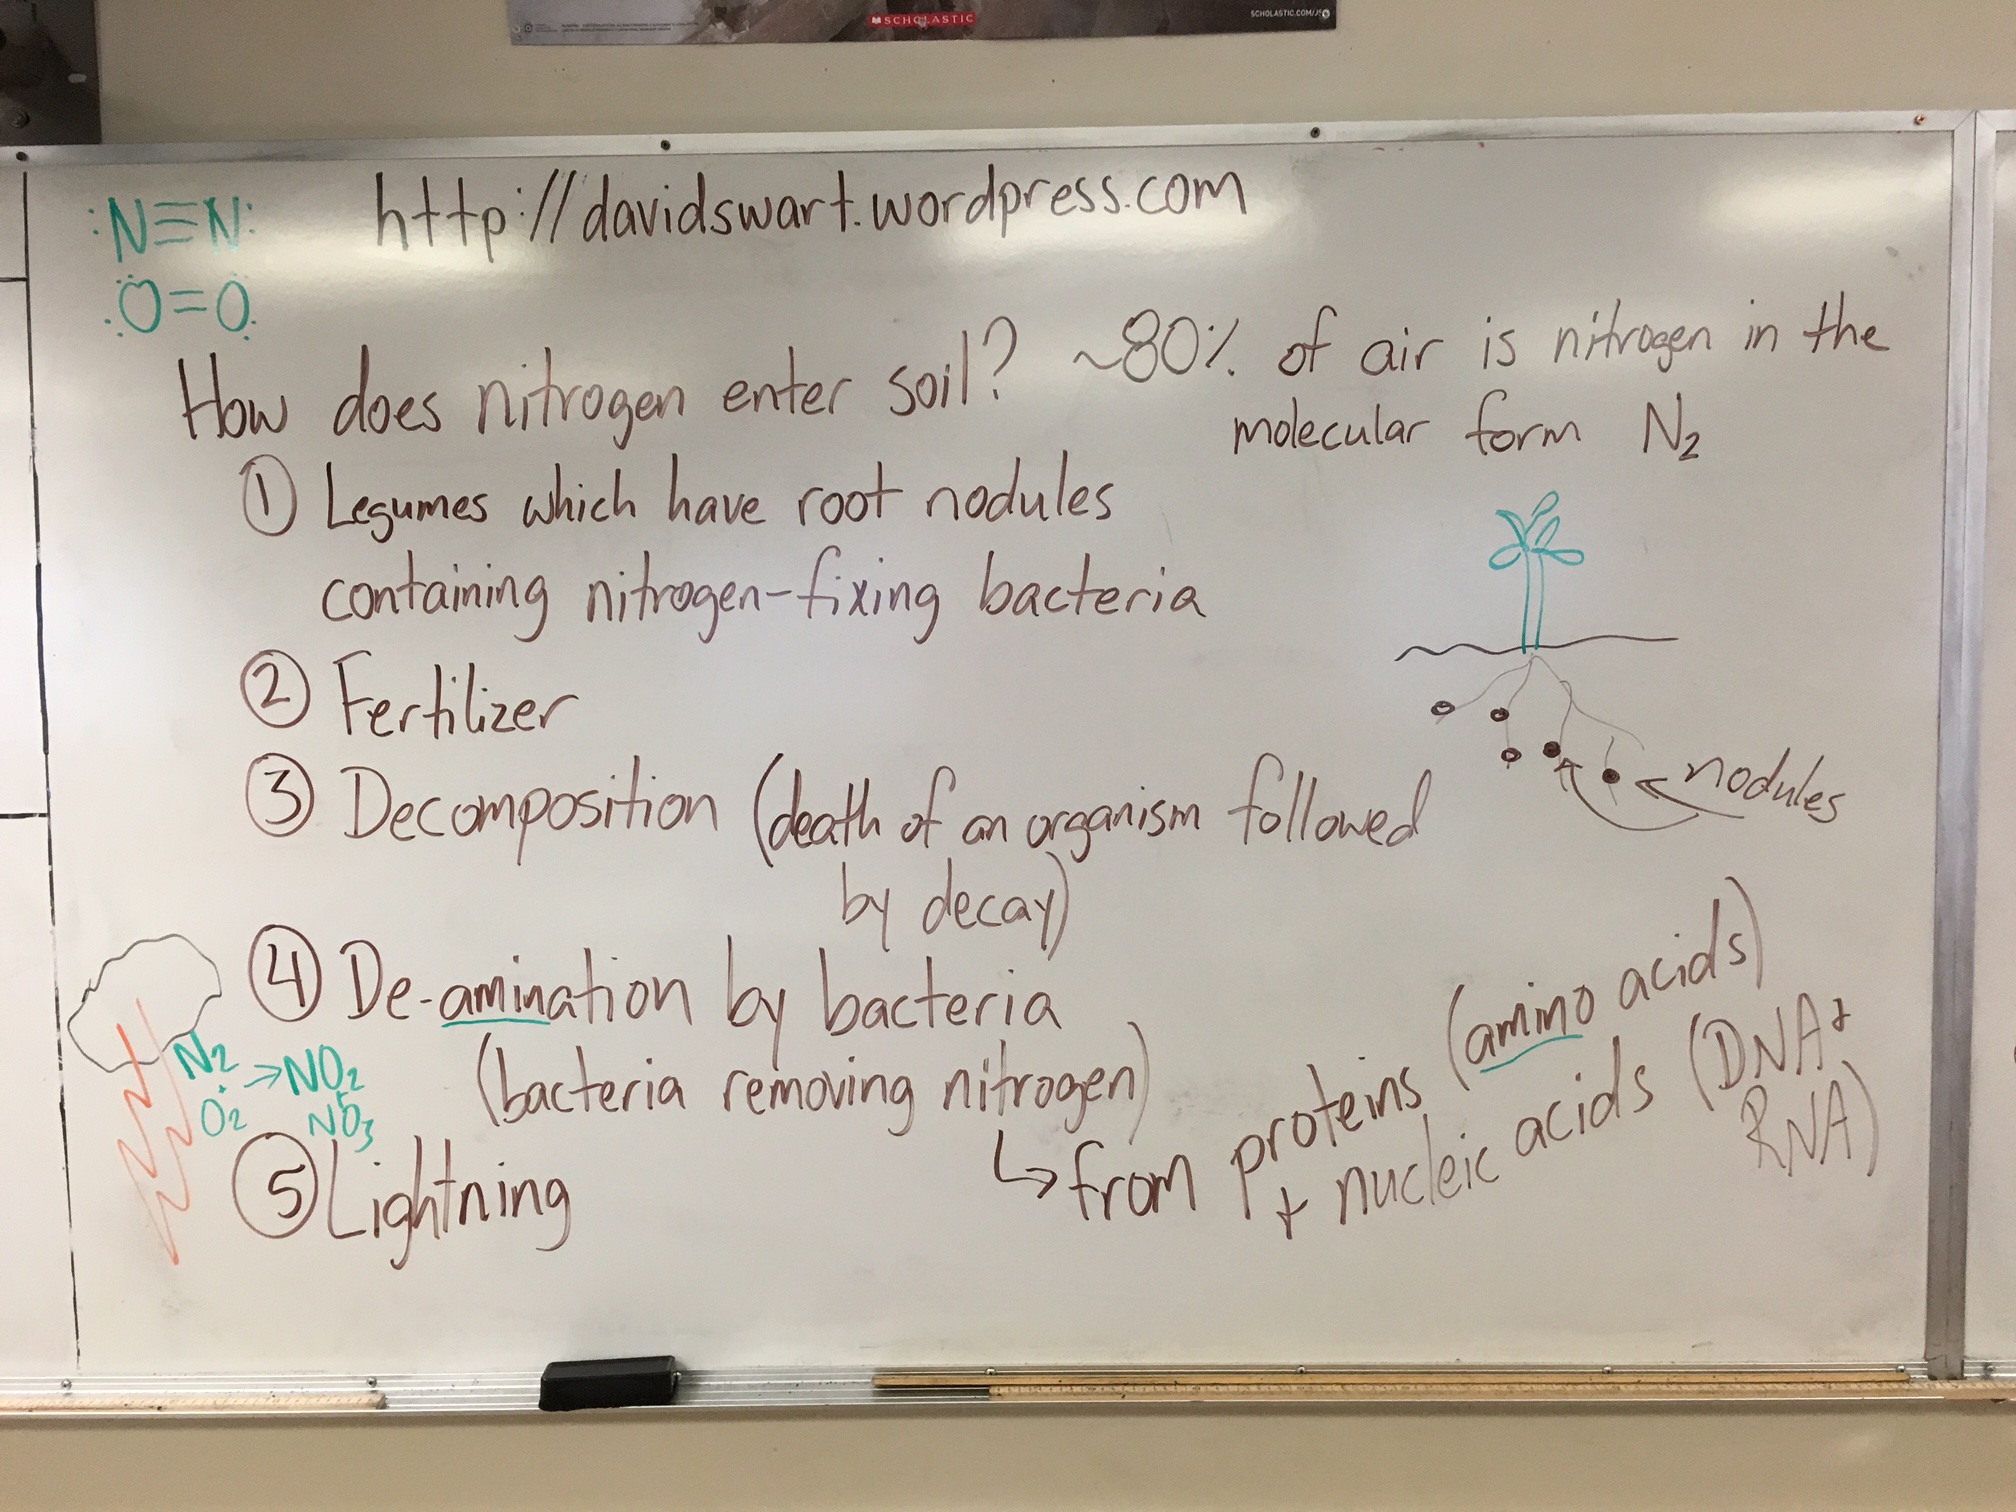 SCHOLASTIC
SCHOLASTIC.COM/JS
:N≡N: http://davidswart.wordpress.com
O=O
How does nitrogen enter soil? ~80% of air is nitrogen in the
molecular form N₂
① Legumes which have root nodules
containing nitrogen-fixing bacteria
② Fertilizer
③ Decomposition (death of an organism followed
by decay)
nodules
④ De-amination by bacteria
(bacteria removing nitrogen)
↳ from proteins (amino acids)
+ nucleic acids (DNA +
RNA)
N₂ + O₂ → NO₂ + NO₃
⑤ Lightning